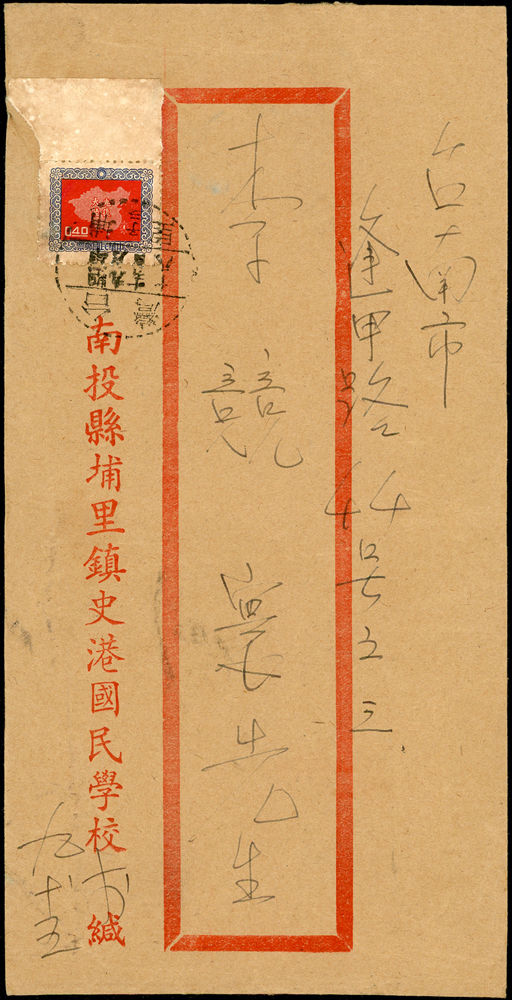 台南市
逢甲路44号之三
李競寰先生
南投縣埔里鎮史港國民學校 緘
0.40